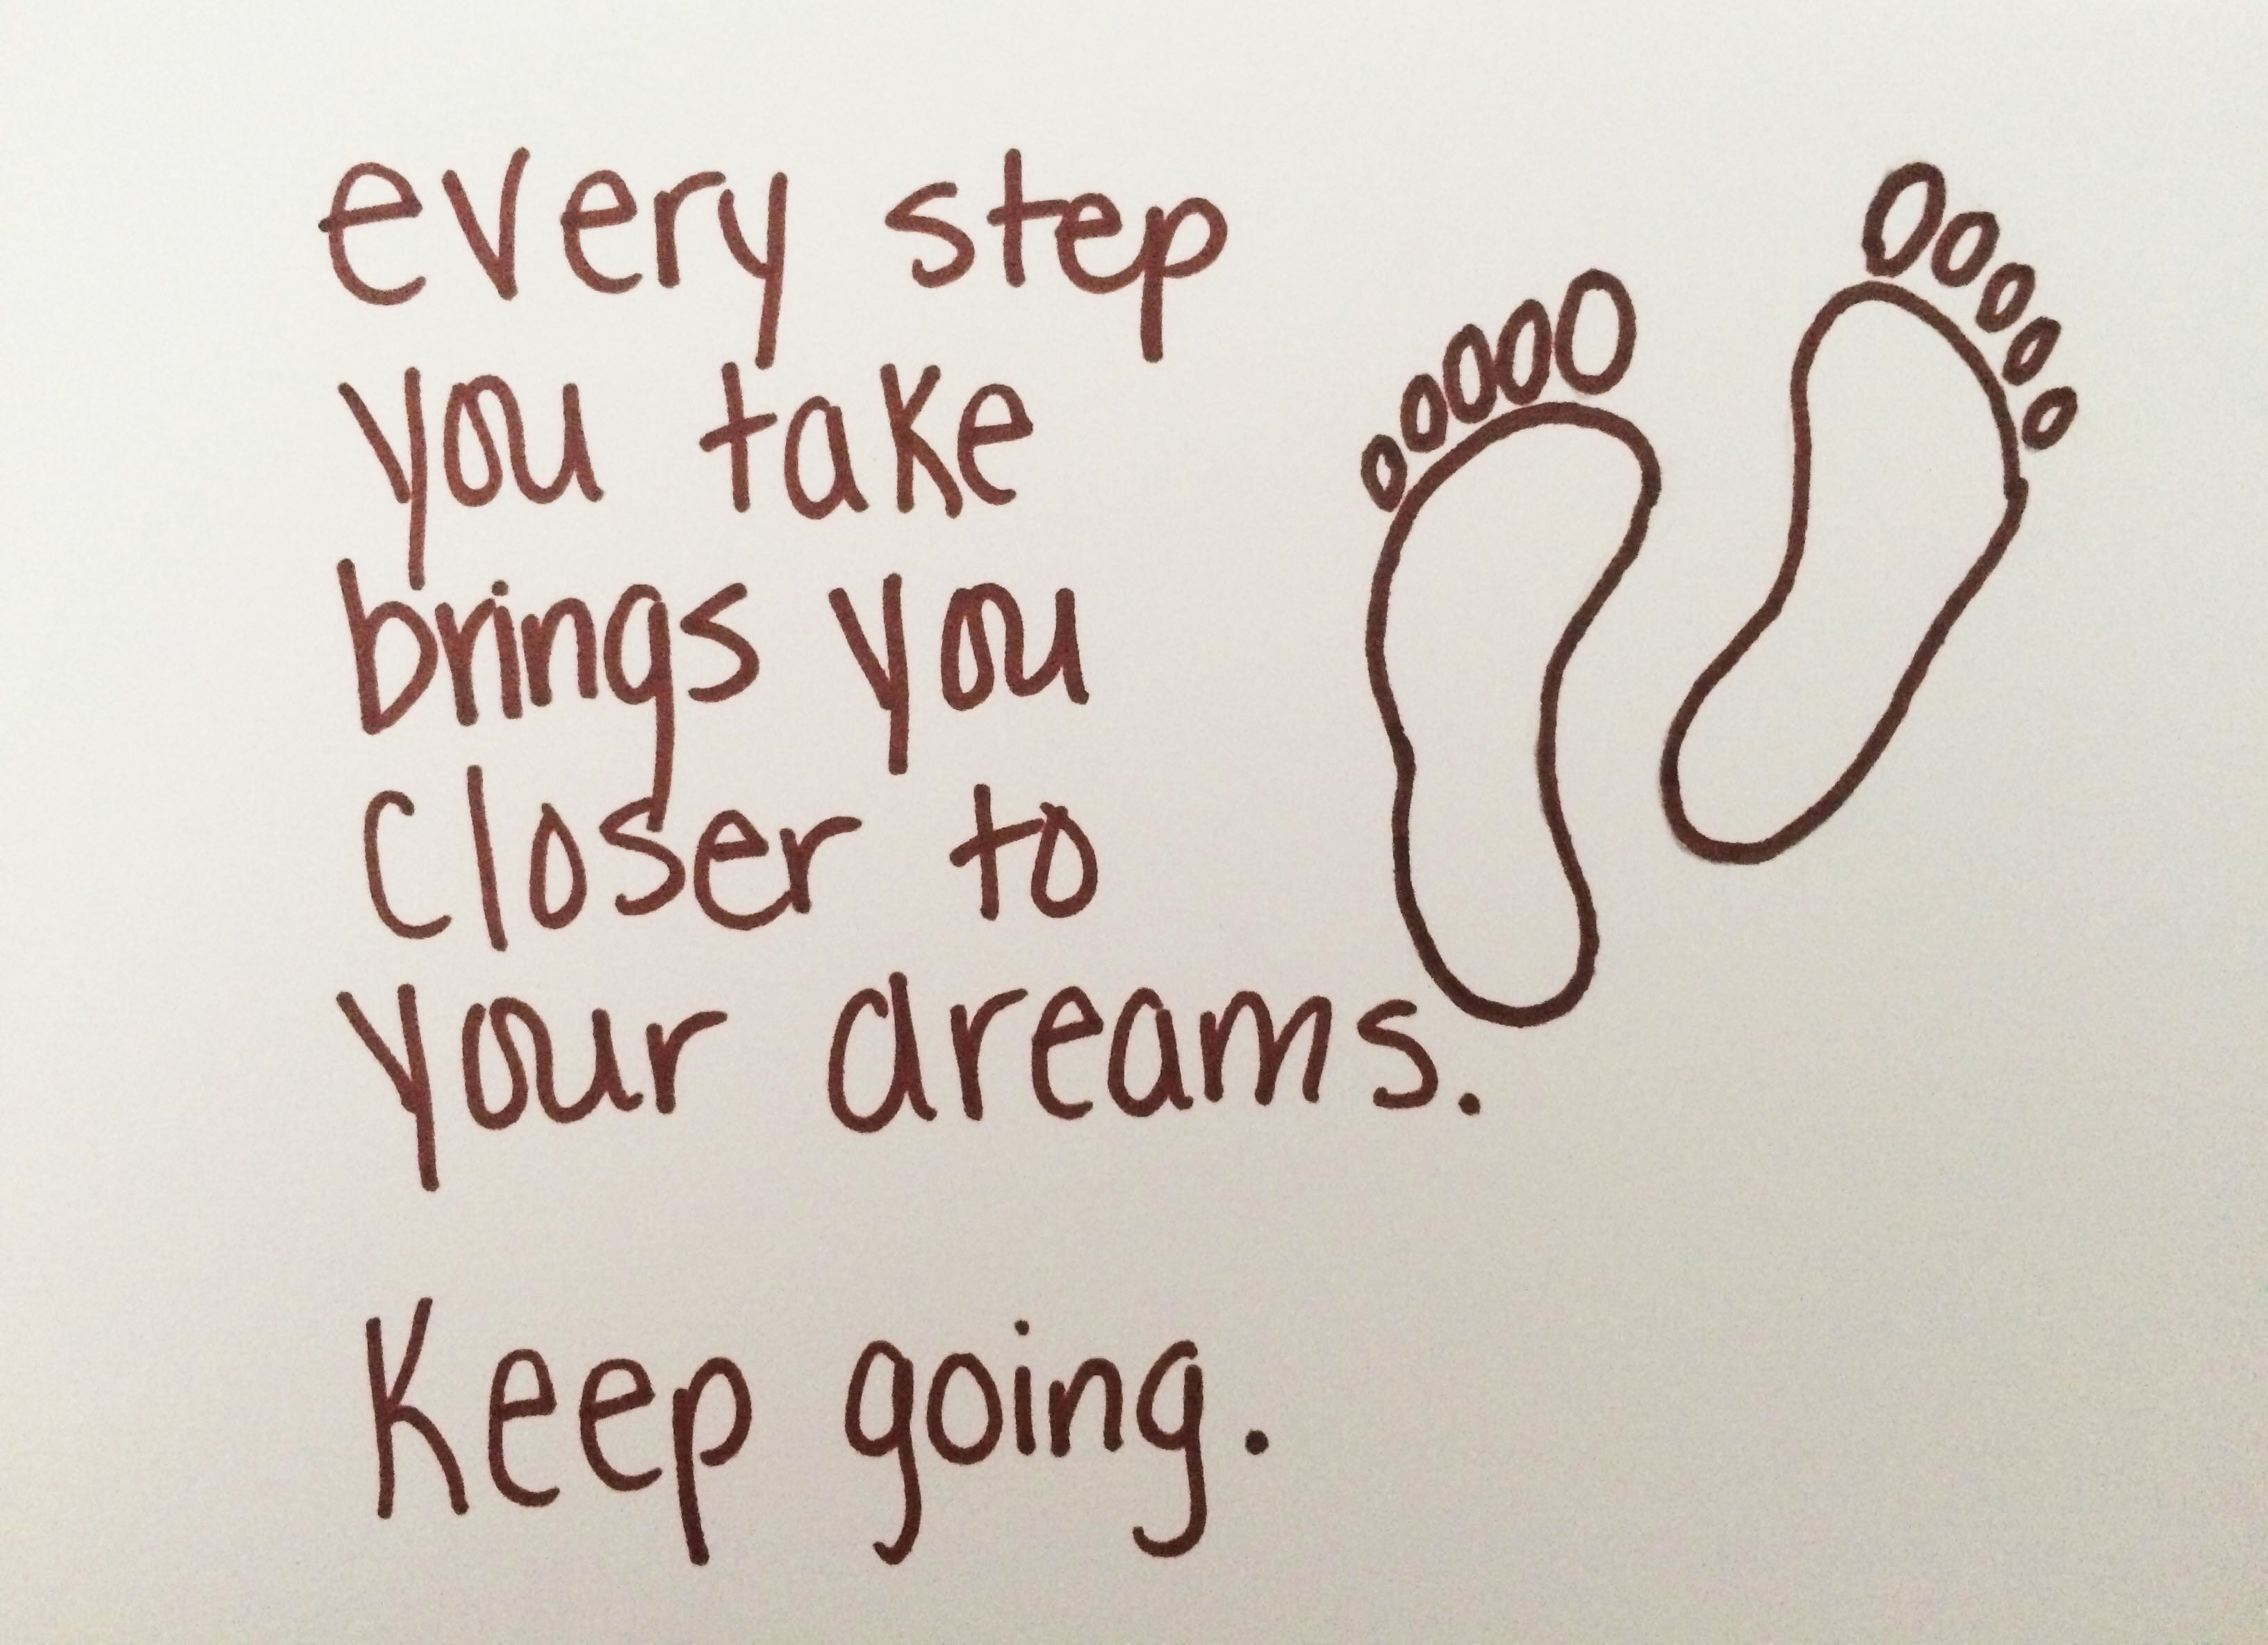 every step
you take
brings you
closer to
your dreams.
Keep going.